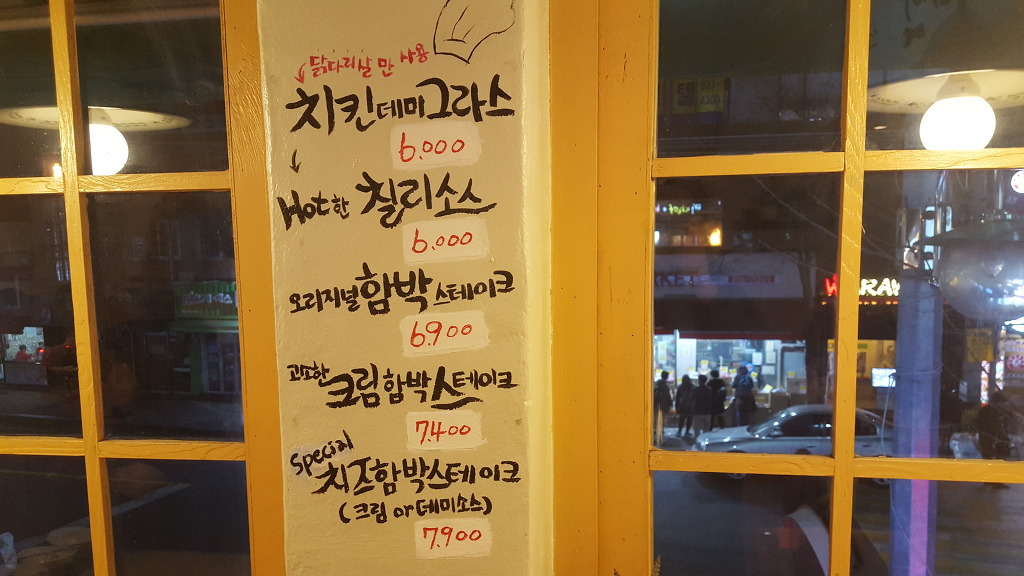 닭다리살 만 사용
치킨데미그라스
6.000
Hot한 칠리소스
6.000
오리지널 함박 스테이크
6.900
고소한 크림함박스테이크
7.400
special
치즈함박스테이크
(크림 or 데미소스)
7.900